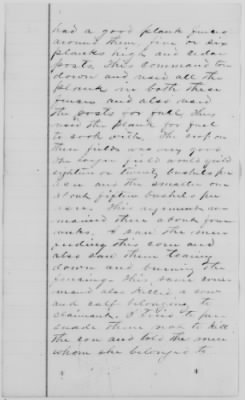 had a good plank fence
around them, five or six
planks high and cedar
posts. This command tore
down and used all the
plank on both these
fences and also used
the posts for fuel. They
used the plank for fuel
to cook with. The crop on
these fields was very good
the larger field would yield
eighteen or twenty bushels per
acre and the smaller one
about fifteen bushels per
acre. This regiment re-
mained there about four
weeks. I saw the men
using this corn and
also saw them tearing
down and burning the
fencing. This same com-
mand also killed a cow
and calf belonging to
claimant. I tried to per-
suade them not to kill
the cow and told the men
whom she belonged to